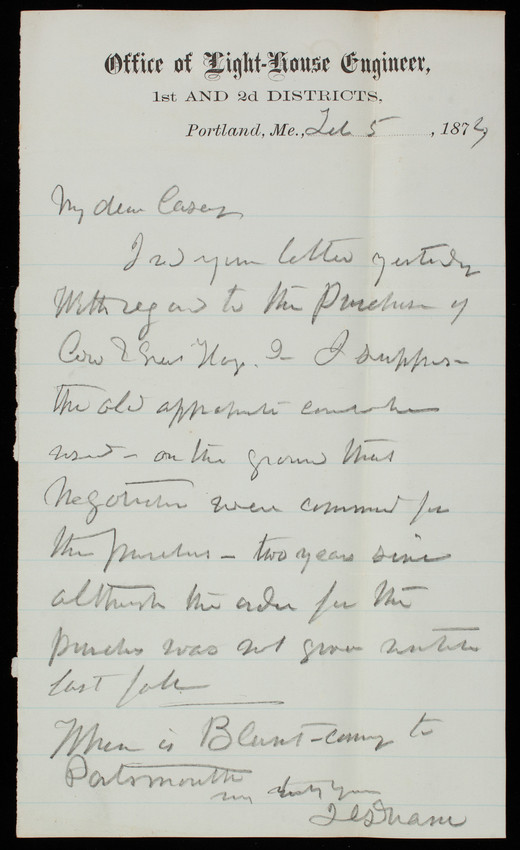 Office of Light-House Engineer,
1st AND 2d DISTRICTS,
Portland, Me., Feb 5, 187
My dear Casey
I rd your letter yesterday
With regard to the Purchase of
Cow & Hog. I suppose
the old appropriate could be
used - on the ground that
Negotiation were commend for
the purchase - two years since
although the order for the
purchase was not given until
last fall
When is Blunt coming to
Portsmouth
truly yours